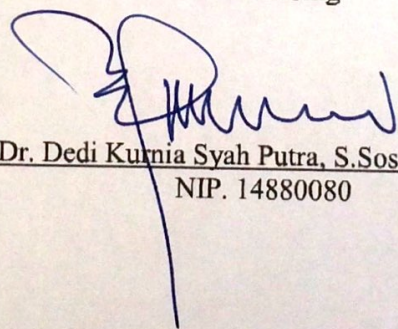 Dr. Dedi Kurnia Syah Putra, S.Sos
NIP. 14880080